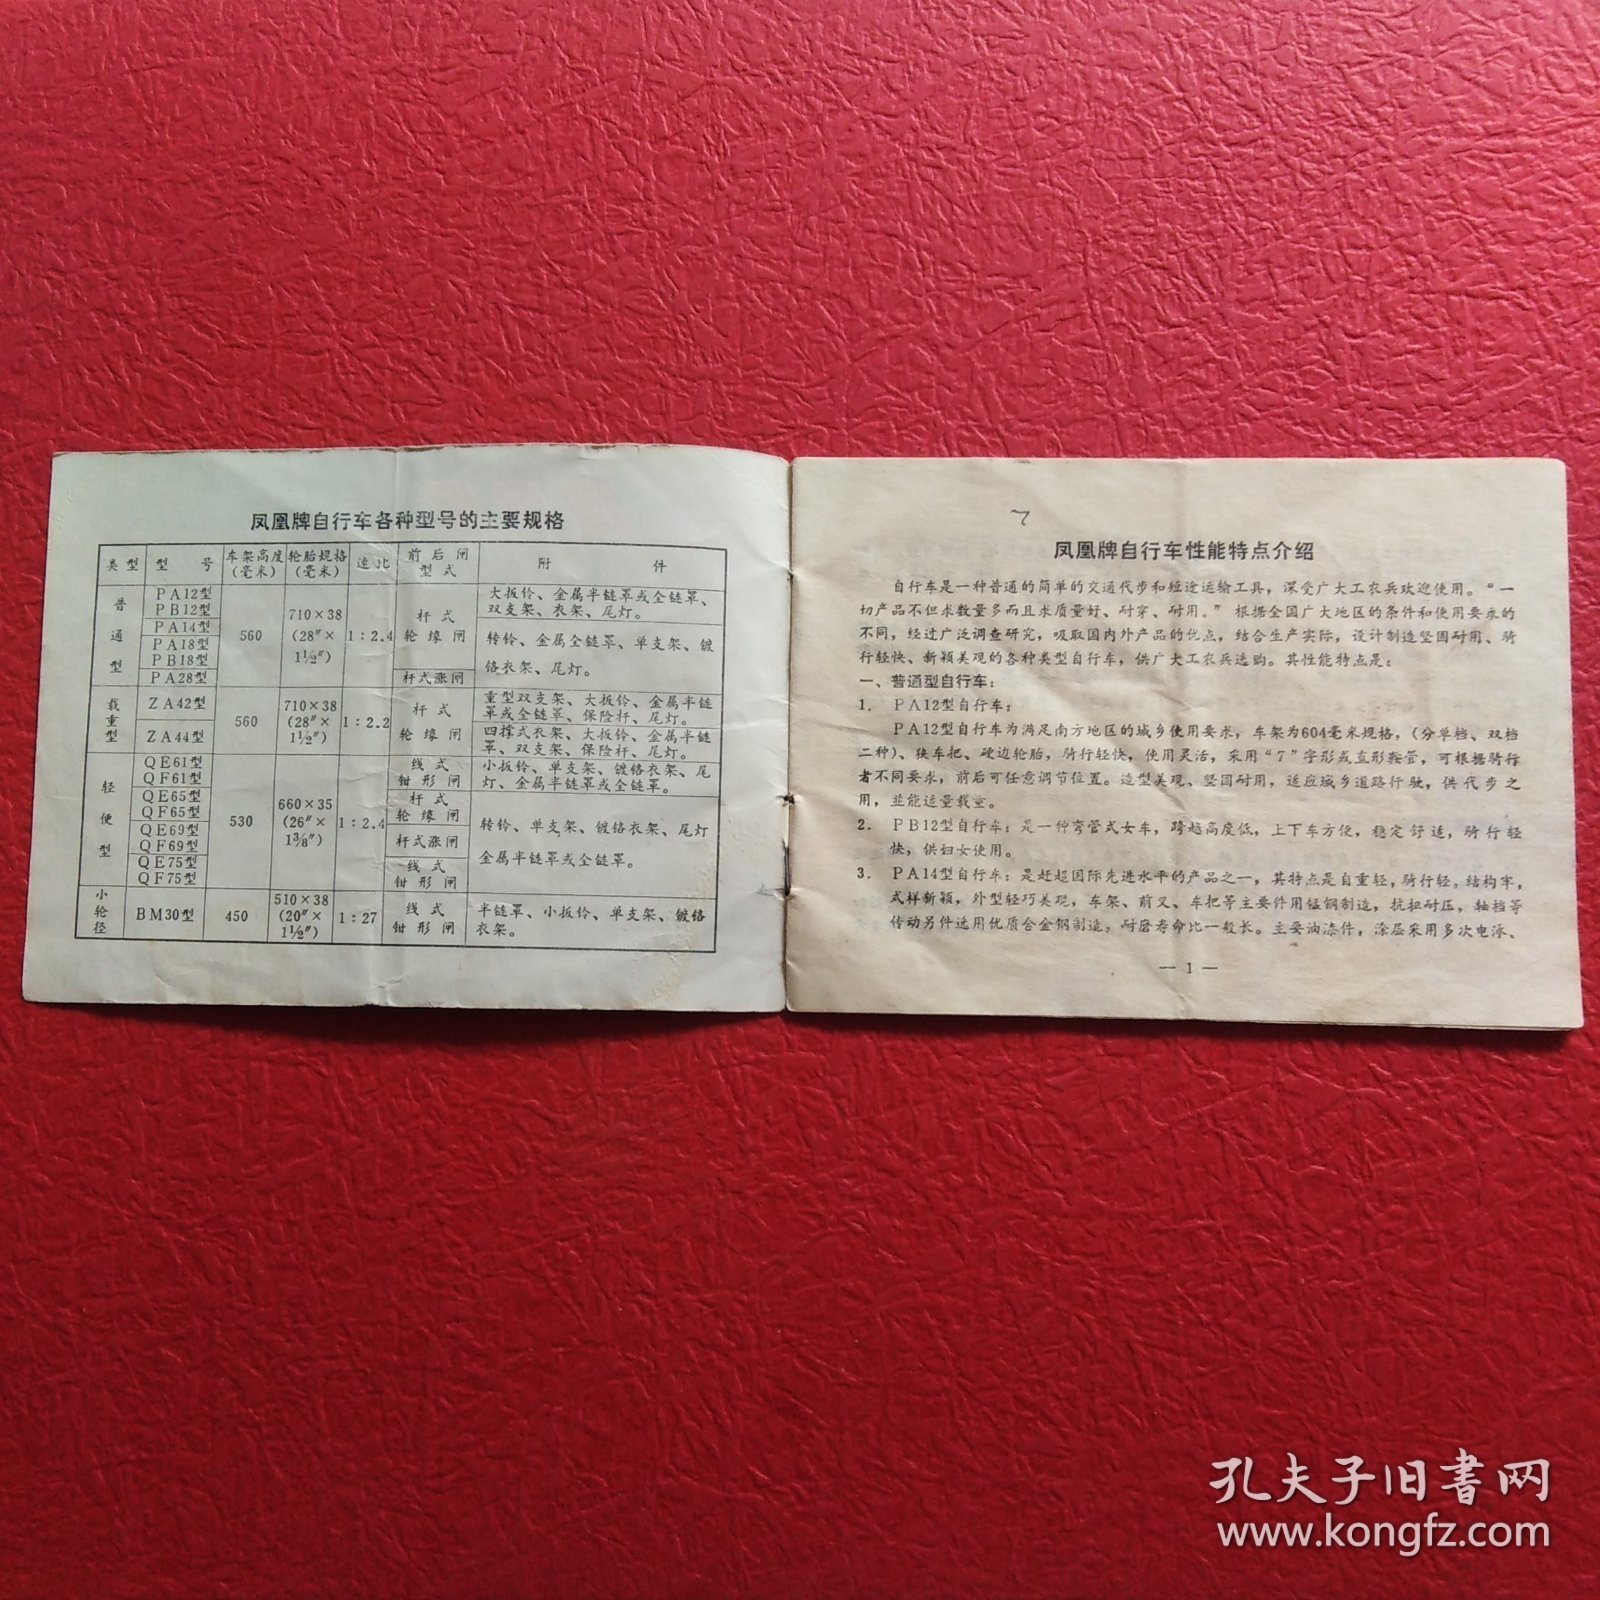 凤凰牌自行车各种型号的主要规格
类型 型号 车架高度(毫米) 轮胎规格(毫米) 速比 前后闸型式 附件
普通型
PA12型
PB12型
PA14型
PA18型
PB18型
PA28型
560
710×38
(28″×
1½″)
1:2.4
杆式
轮缘闸
杆式涨闸
大扳铃、金属半链罩或全链罩、
双支架、衣架、尾灯。
转铃、金属全链罩、单支架、镀
铬衣架、尾灯。
载重型
ZA42型
ZA44型
560
710×38
(28″×
1½″)
1:2.2
杆式
轮缘闸
重型双支架、大扳铃、金属半链
罩或全链罩、保险杆、尾灯。
四撑式衣架、大扳铃、金属半链
罩、双支架、保险杆、尾灯。
轻便型
QE61型
QF61型
QE65型
QF65型
QE69型
QF69型
QE75型
QF75型
530
660×35
(26″×
1⅜″)
1:2.4
线式
钳形闸
杆式
轮缘闸
杆式涨闸
线式
钳形闸
小扳铃、单支架、镀铬衣架、尾
灯、金属半链罩或全链罩。
转铃、单支架、镀铬衣架、尾灯
金属半链罩或全链罩。
小轮径
BM30型
450
510×38
(20″×
1½″)
1:27
线式
钳形闸
半链罩、小扳铃、单支架、镀铬
衣架。
7
凤凰牌自行车性能特点介绍
自行车是一种普通的简单的交通代步和短途运输工具，深受广大工农兵欢迎使用。“一
切产品不但求数量多而且求质量好、耐穿、耐用。”根据全国广大地区的条件和使用要求的
不同，经过广泛调查研究，吸取国内外产品的优点，结合生产实际，设计制造坚固耐用、骑
行轻快、新颖美观的各种类型自行车，供广大工农兵选购。其性能特点是：
一、普通型自行车：
1. PA12型自行车：
PA12型自行车为满足南方地区的城乡使用要求，车架为604毫米规格，（分单档、双档
二种）、狭车把、硬边轮胎，骑行轻快，使用灵活，采用“7”字形或直形鞍管，可根据骑行
者不同要求，前后可任意调节位置。造型美观、坚固耐用，适应城乡道路行驶，供代步之
用，并能适量载重。
2. PB12型自行车：是一种弯管式女车，跨越高度低，上下车方便，稳定舒适，骑行轻
快，供妇女使用。
3. PA14型自行车：是赶超国际先进水平的产品之一，其特点是自重轻，骑行轻，结构牢，
式样新颖，外型轻巧美观，车架、前叉、车把等主要件用锰钢制造，抗扭耐压，轴档等
传动另件选用优质合金钢制造，耐磨寿命比一般长。主要油漆件，涂层采用多次电泳、
— 1 —
孔夫子旧书网
www.kongfz.com